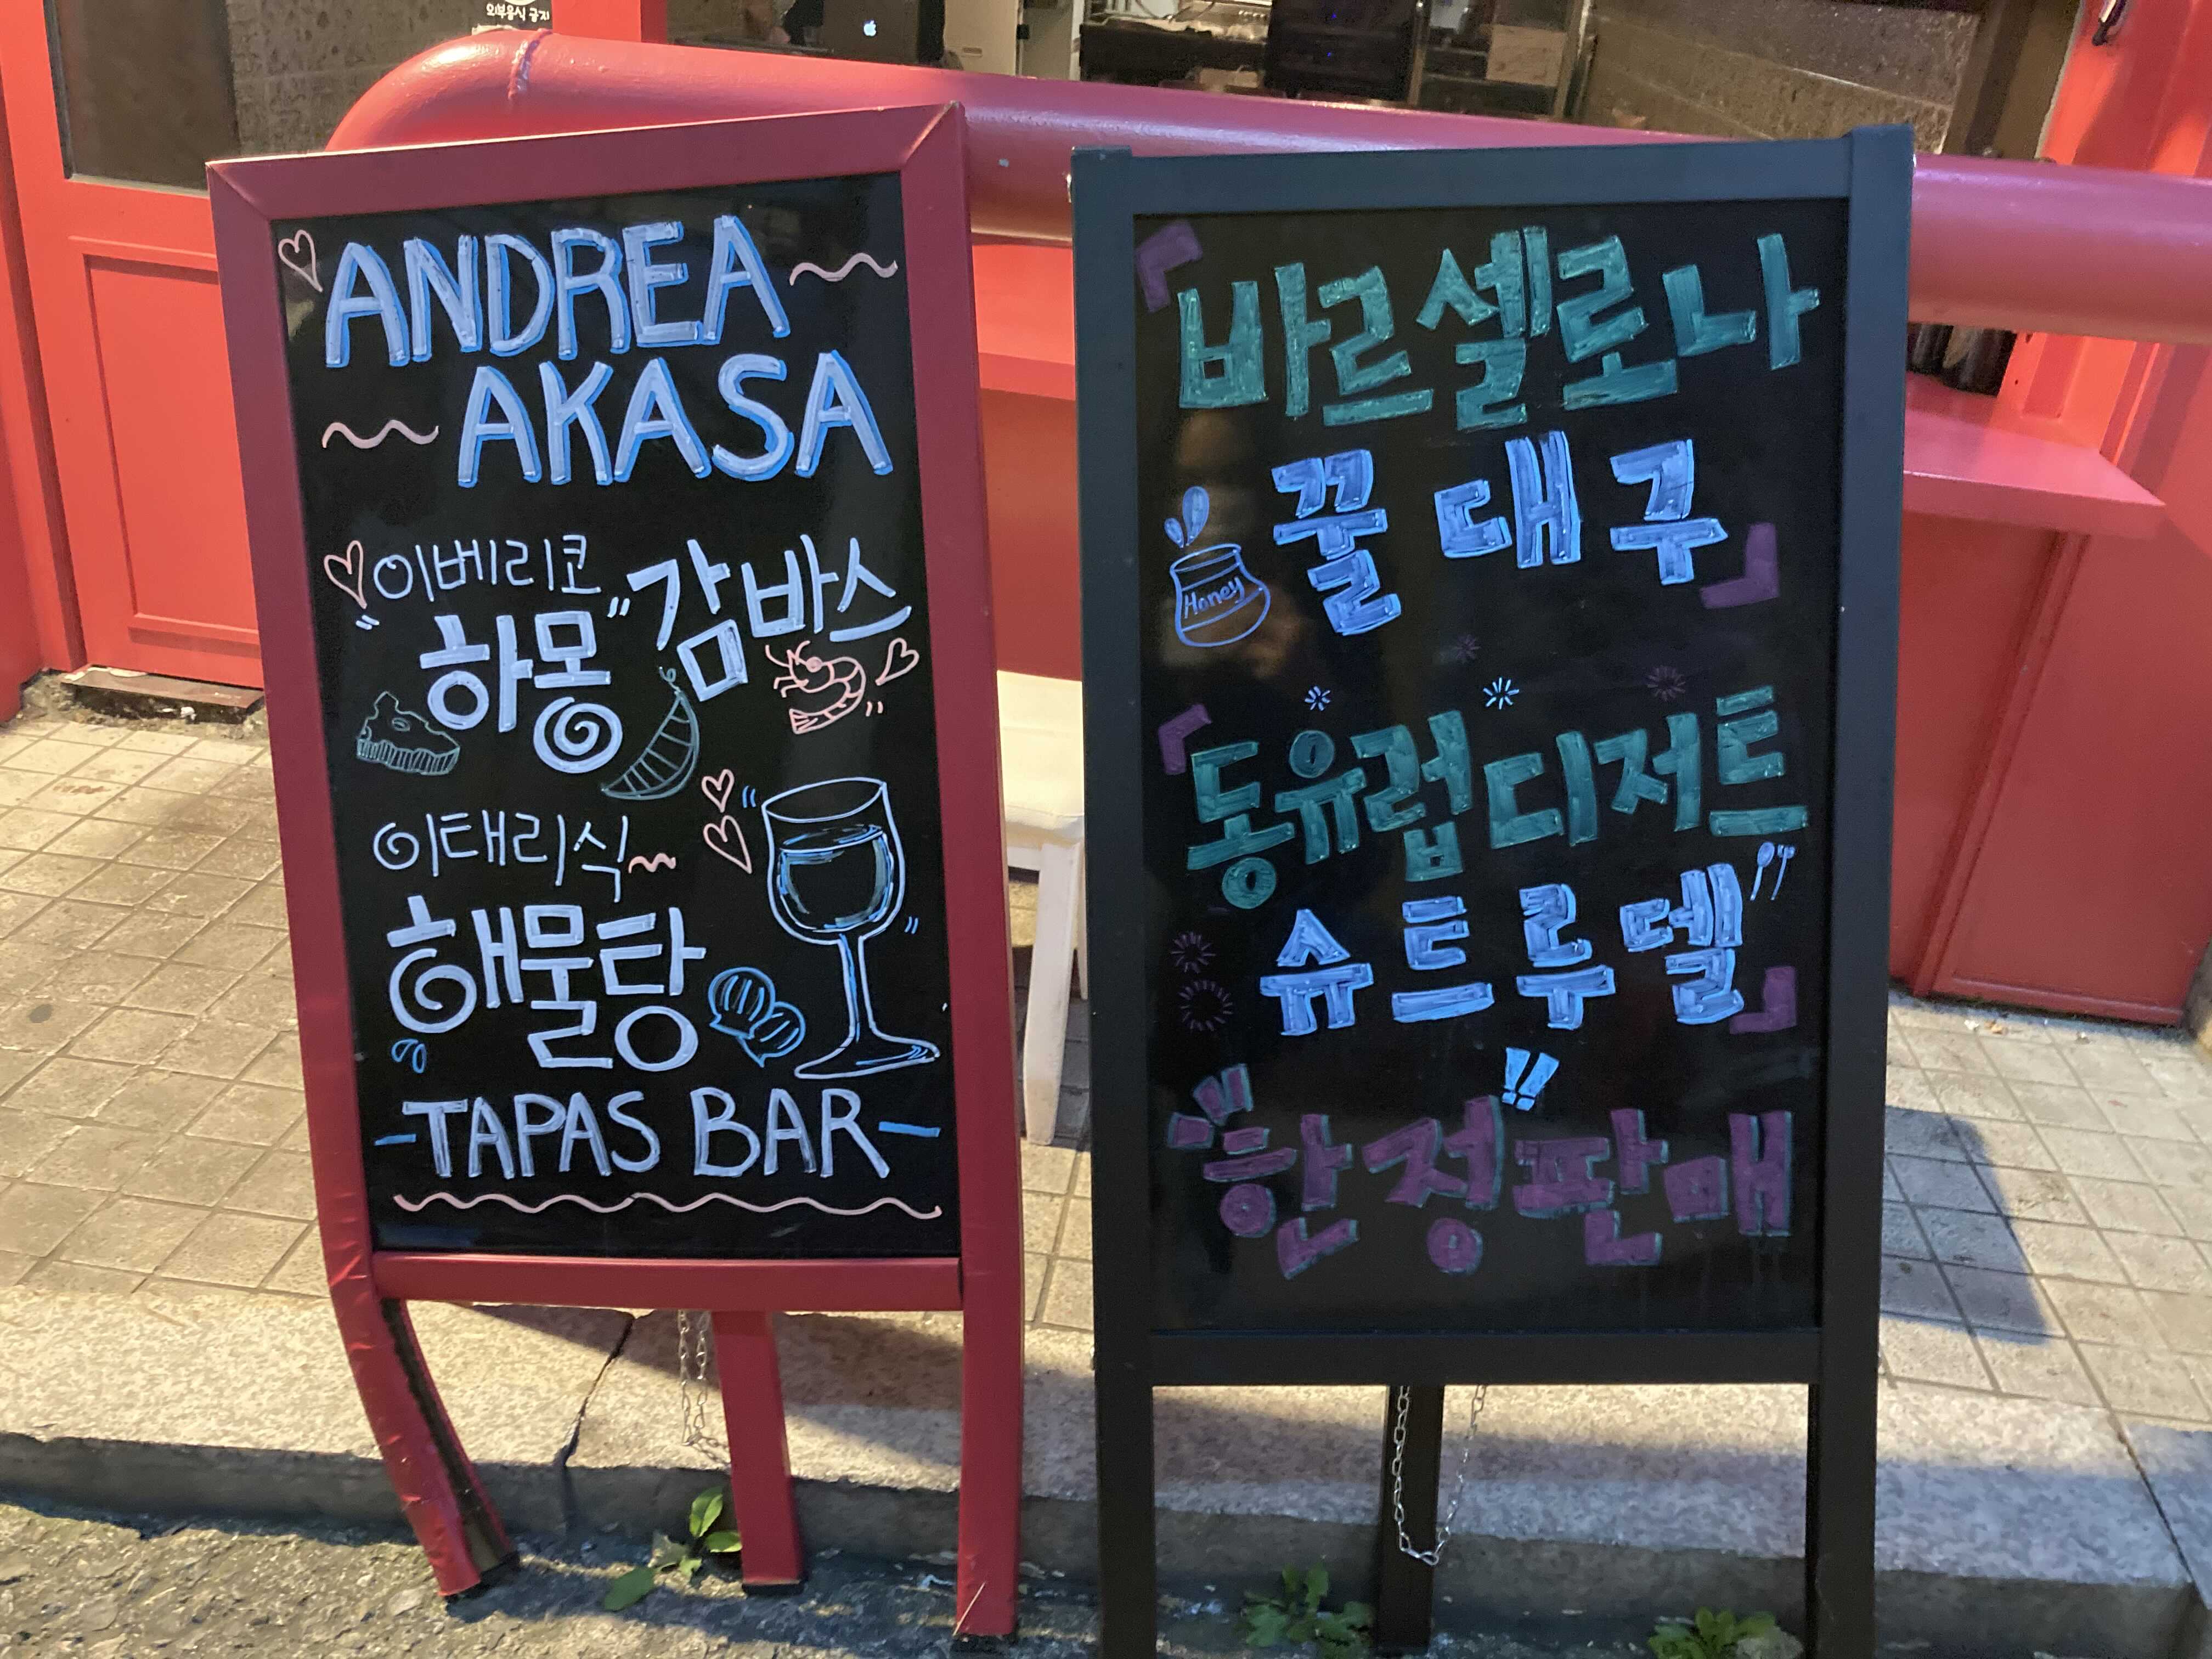 외부음식 금지
ANDREA
AKASA
이베리코
하몽 감바스
이태리식
해물탕
TAPAS BAR
「바르셀로나
꿀 대구」
Honey
「동유럽디저트
슈트루델」
!!
한정판매